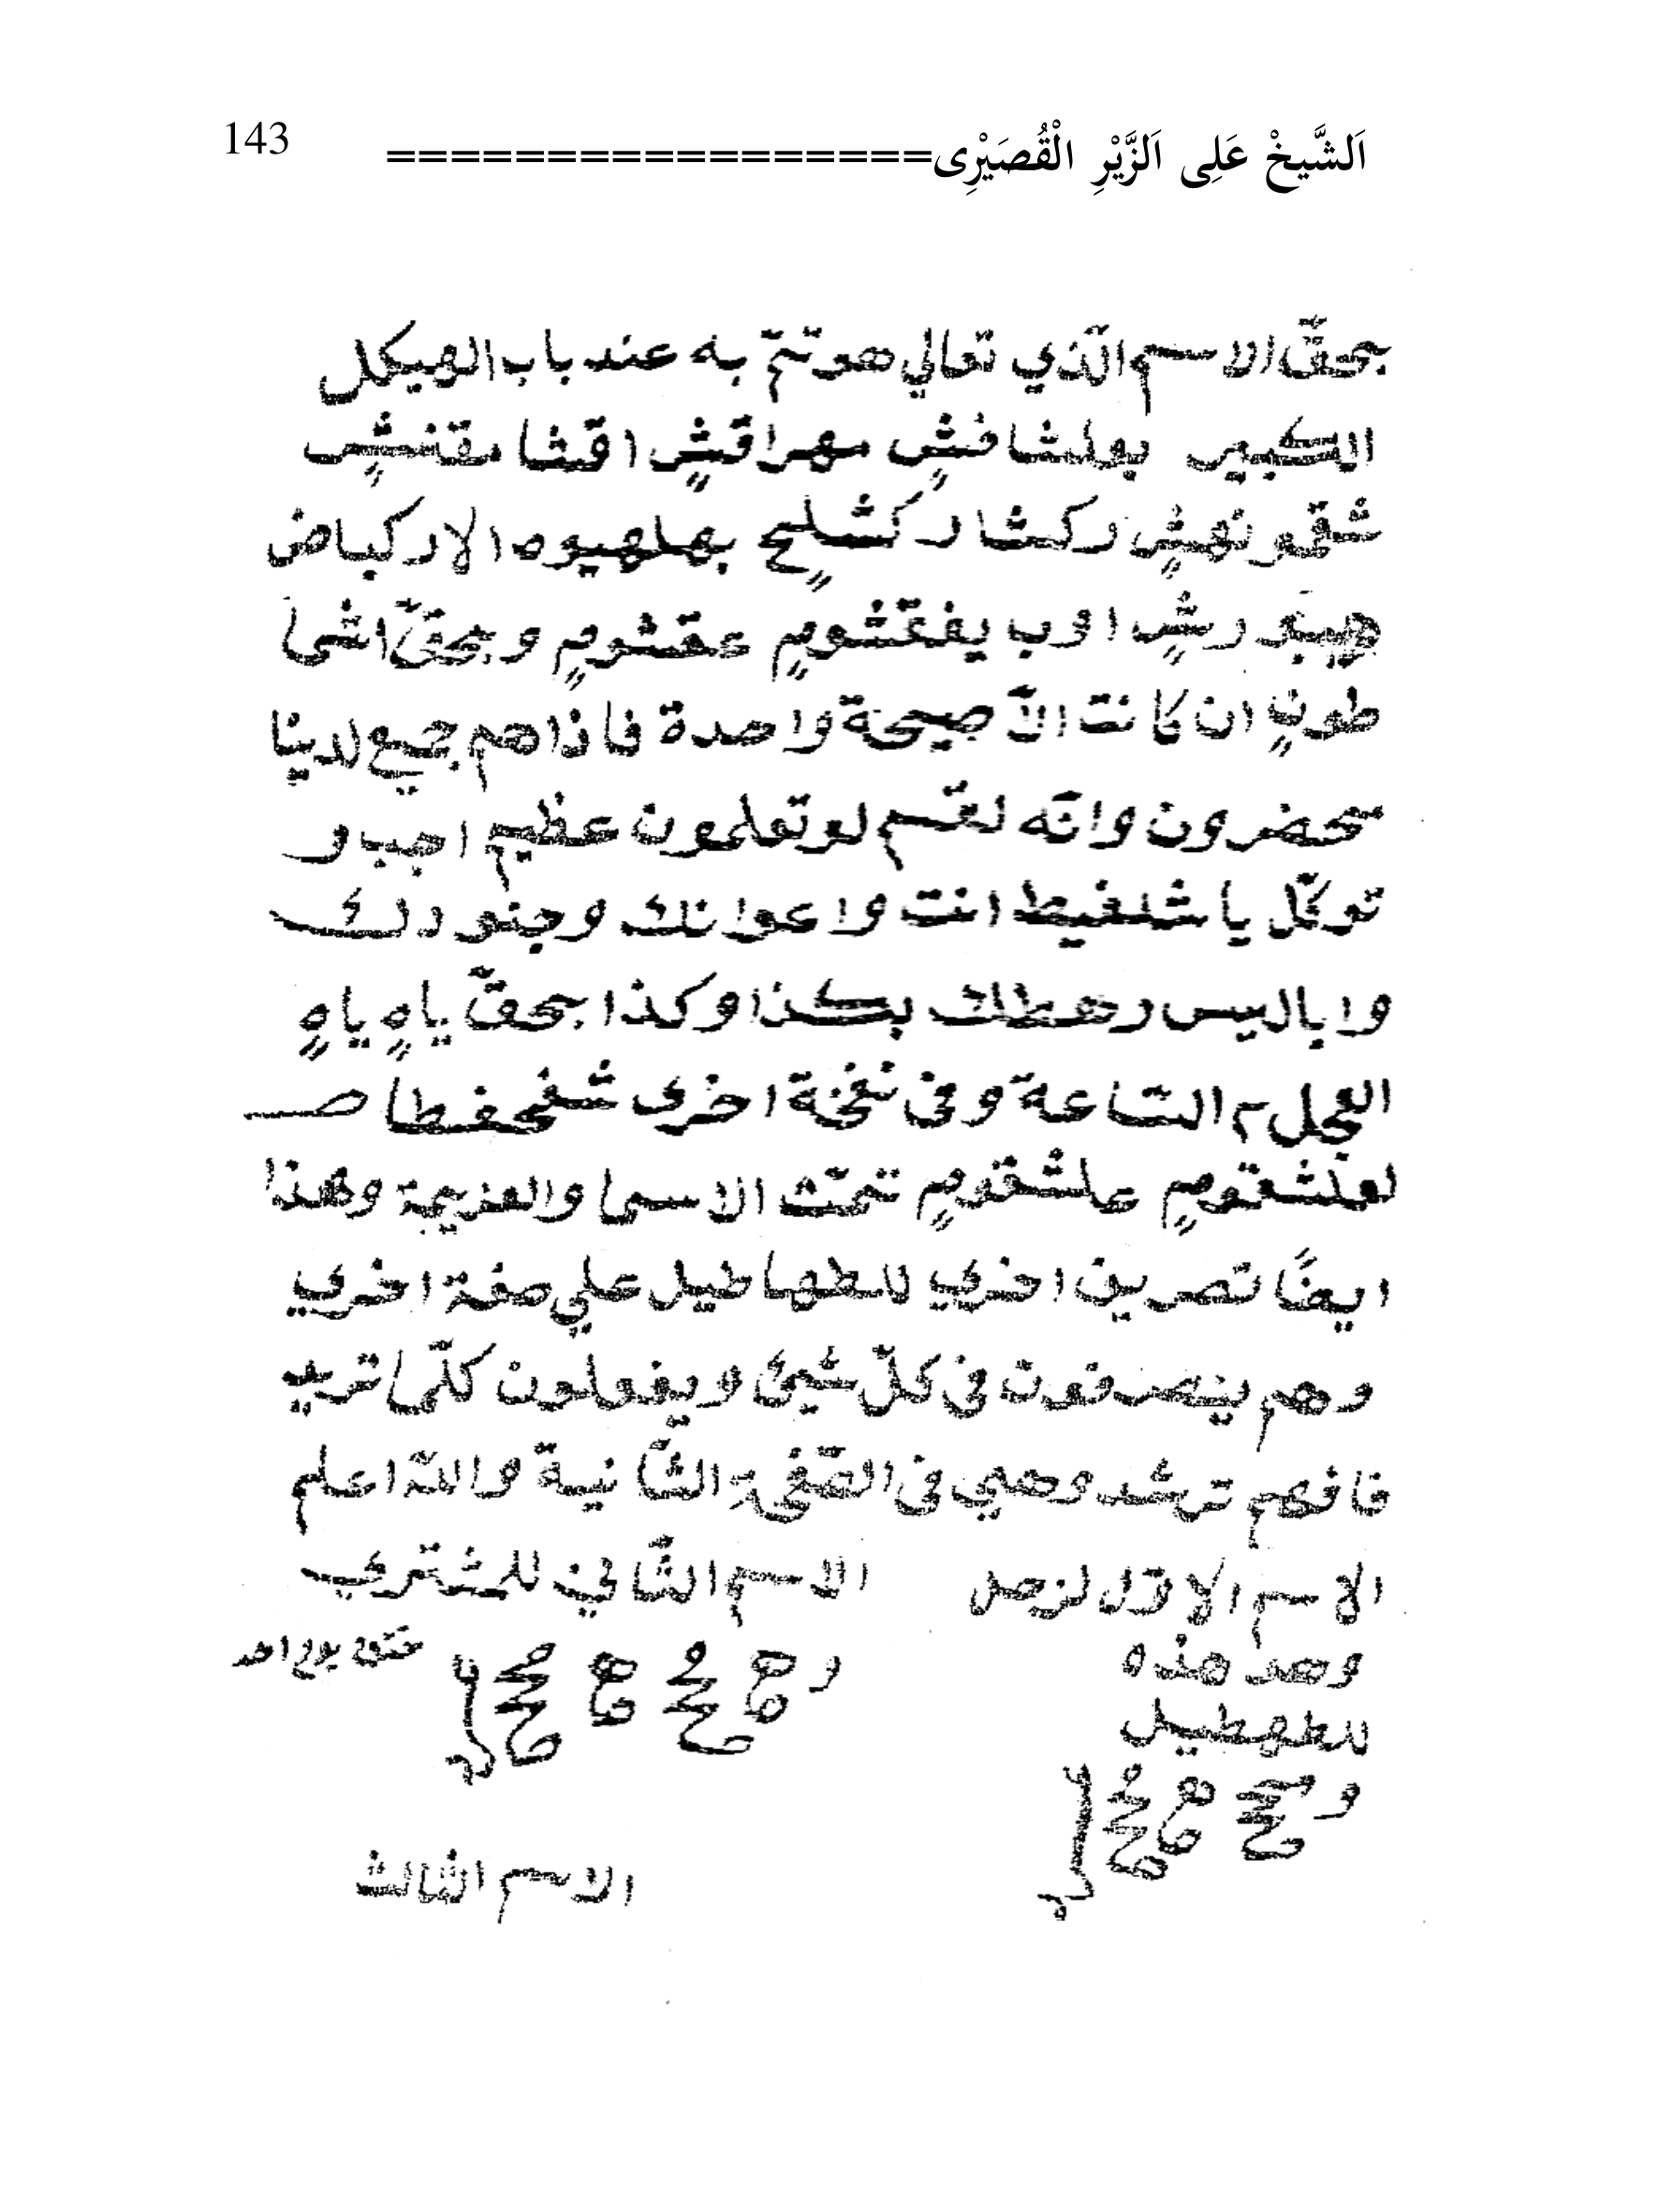 اَلشَّيخْ عَلِى اَلزَّيْرِ الْقُصَيْرِى================= 143
بحقّ الاسم الّذي تعالي هو تتمّ به عند باب الهيكل
الكبير بعلشاقشٍ مهراقشٍ اقشا مقنشٍ
شقمونهشٍ ركشا ركشلحٍ بهلهيوه الاركياض
رشٍ اوب يفقشومٍ عقشومٍ وبحقّ اشما
طونٍ ان كانت الاّ صيحة واحدة فاذاهم جميع لدينا
محضرون وانّه لقسم لو تعلمون عظيم اجب و
توكّل يا شلغيط انت واعوانك وجنودك
واباليس رهطك بكذا وكذا بحقّ ياهٍ ياهٍ
العجل م السّاعة وفى نفخة اخرى شفحفطا صـ
لعلشقومٍ علشقومٍ تمّت الاسما والعزيمة وهذا
ايضًا تصريف اخري للطهاطيل علي صفة اخري
وهم ينصرفون فى كلّ شيئ ويفعلون كلّما تريد
فافهم ترشد وهي فى الصّفحة الثّانية واللّه اعلم
الاسم الاوّل لزحل الاسم الثّاني للمشتري
وهد هذه
للطهطيل
الاسم الثالث